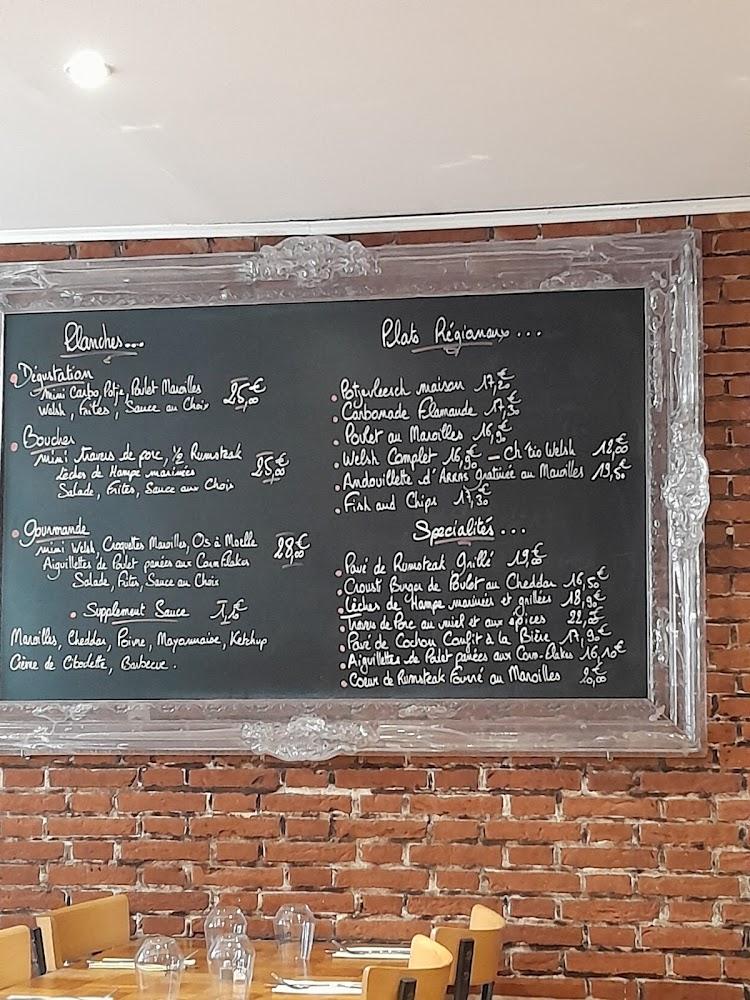 Planches...
Dégustation
mini Carbo, Potje, Poulet Maroilles
Welsh, Frites, Sauce au Choix 25,00€
Bouches
mini travers de porc, 1/2 Rumsteak
Lèches de Hampe marinées
Salade, Frites, Sauce aux Choix 25,00€
Gourmande
mini Welsh, Croquettes Maroilles, Os à Moelle
Aiguillettes de Poulet panées aux Corn Flakes 28,00€
Salade, Frites, Sauce au Choix
Supplement Sauce
Maroilles, Cheddar, Poivre, Mayonnaise, Ketchup
Crème de Ciboulette, Barbecue.
Plats Régionaux...
Potjevleesch maison 17,20€
Carbonade Flamande 17,30€
Poulet au Maroilles 16,90€
Welsh Complet 16,90€ - Ch'tio Welsh 12,00€
Andouillette d'Arras Gratinée au Maroilles 19,50€
Fish and Chips 17,30€
Specialités...
Pavé de Rumsteak Grillé 19,00€
Croust Burger de Poulet au Cheddar 16,50€
Lèches de Hampe marinées et grillées 18,90€
Travers de Porc au miel et aux épices 22,00€
Pavé de Cochon Confit à la Bière 17,90€
Aiguillettes de Poulet panées aux Corn-Flakes 16,10€
Coeur de Rumsteak Fourré au Maroilles 20,00€